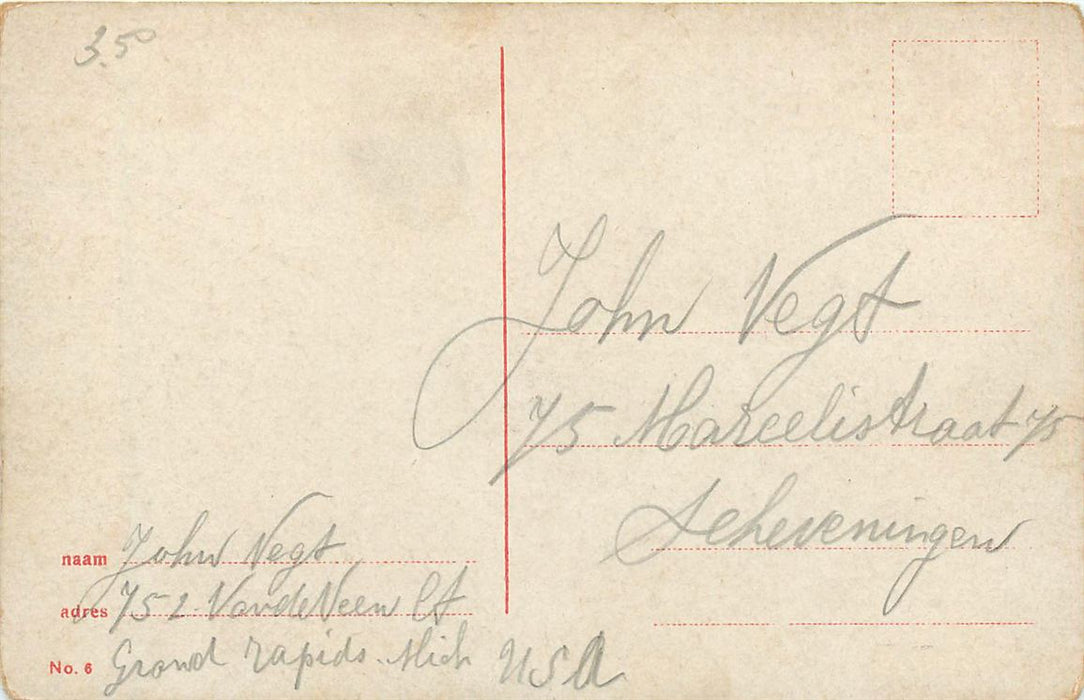 3.5
John Vegt
75 Marcelistraat 75
Scheveningen
naam John Vegt
adres 752 VandeVeen Ct
No. 6 Grand rapids. Mich USA